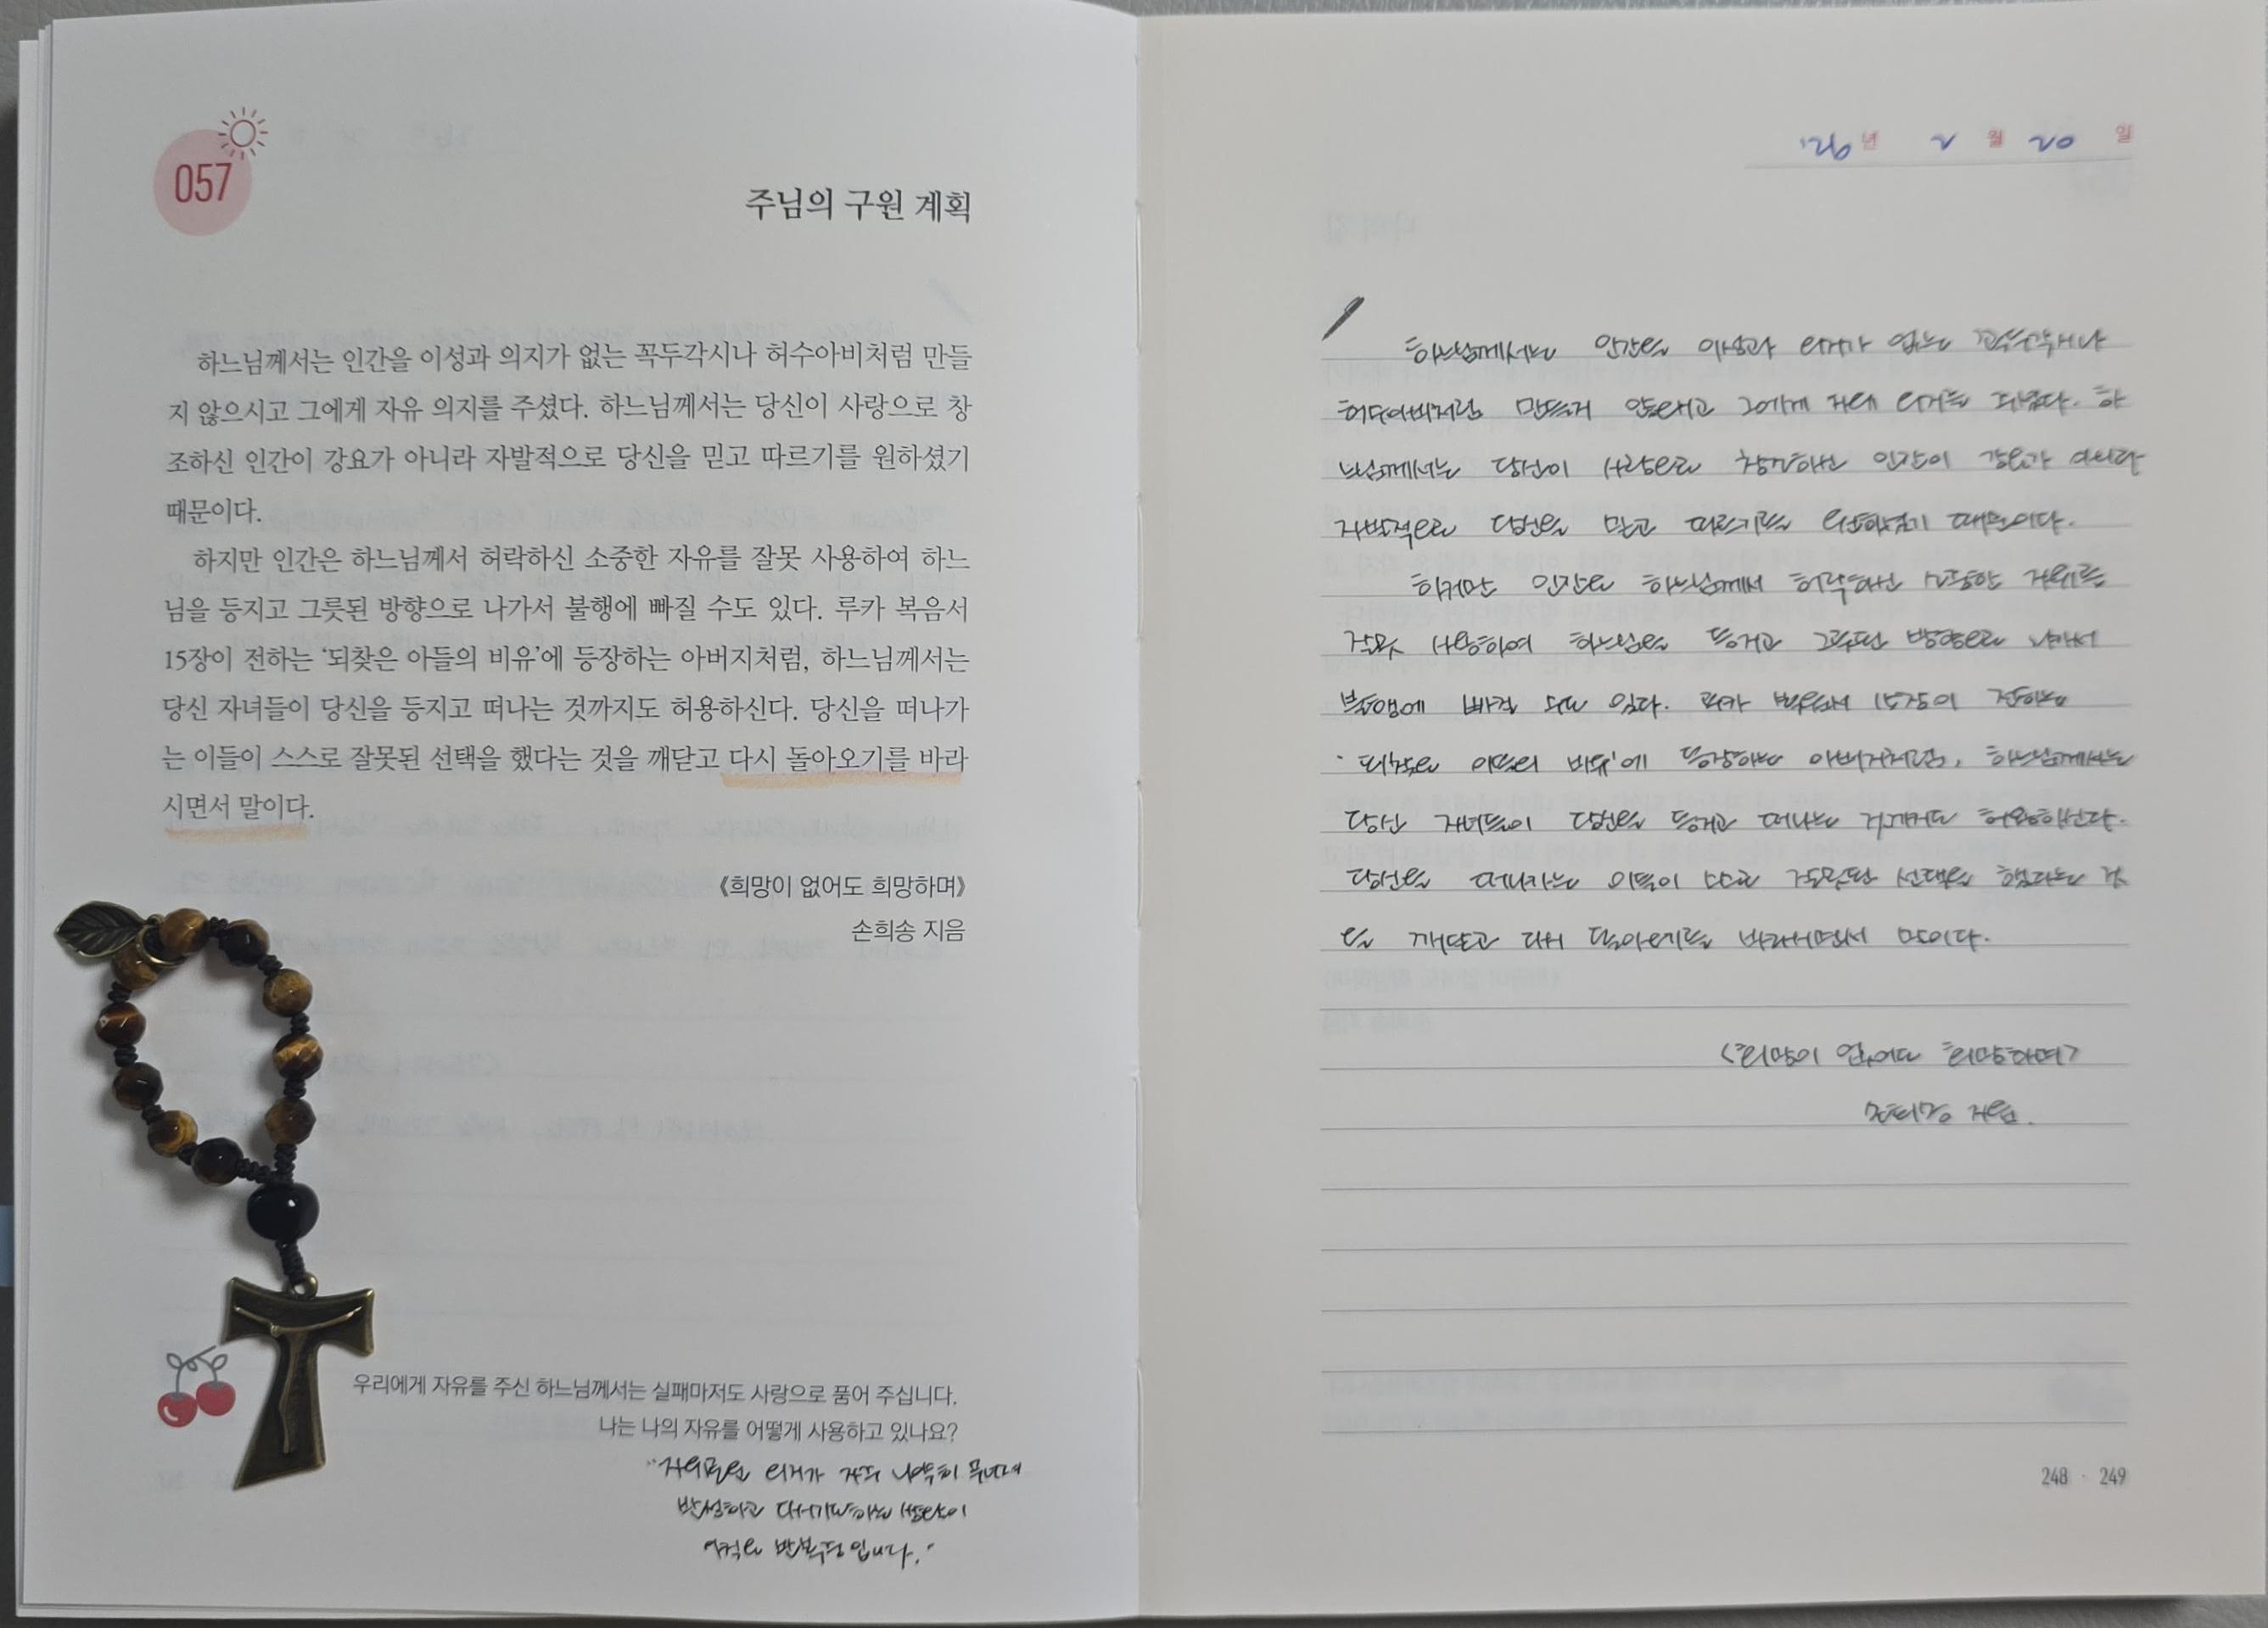 057
주님의 구원 계획
하느님께서는 인간을 이성과 의지가 없는 꼭두각시나 허수아비처럼 만들
지 않으시고 그에게 자유 의지를 주셨다. 하느님께서는 당신이 사랑으로 창
조하신 인간이 강요가 아니라 자발적으로 당신을 믿고 따르기를 원하셨기
때문이다.
하지만 인간은 하느님께서 허락하신 소중한 자유를 잘못 사용하여 하느
님을 등지고 그릇된 방향으로 나가서 불행에 빠질 수도 있다. 루카 복음서
15장이 전하는 ‘되찾은 아들의 비유’에 등장하는 아버지처럼, 하느님께서는
당신 자녀들이 당신을 등지고 떠나는 것까지도 허용하신다. 당신을 떠나가
는 이들이 스스로 잘못된 선택을 했다는 것을 깨닫고 다시 돌아오기를 바라
시면서 말이다.
《희망이 없어도 희망하며》
손희송 지음
우리에게 자유를 주신 하느님께서는 실패마저도 사랑으로 품어 주십니다.
나는 나의 자유를 어떻게 사용하고 있나요?
의지가 자주
반성하고 다시기도하는
반복중입니다."
'26년 2월 20일
하느님께서는 인간을 이성과 의지가 없는 꼭두각시나
허수아비처럼 만들지 않으시고 그에게 자유 의지를 주셨다. 하
느님께서는 당신이 사랑으로 창조하신 인간이 강요가 아니라
자발적으로 당신을 믿고 따르기를 원하셨기 때문이다.
하지만 인간은 하느님께서 허락하신 소중한 자유를
잘못 사용하여 하느님을 등지고 그릇된 방향으로 나가서
불행에 빠질 수도 있다. 루카 복음서 15장이 전하는
'되찾은 아들의 비유'에 등장하는 아버지처럼, 하느님께서는
당신 자녀들이 당신을 등지고 떠나는 것까지도 허용하신다.
당신을 떠나가는 이들이 스스로 잘못된 선택을 했다는 것
을 깨닫고 다시 돌아오기를 바라시면서 말이다.
<희망이 없어도 희망하며>
손희송 지음.
248 · 249